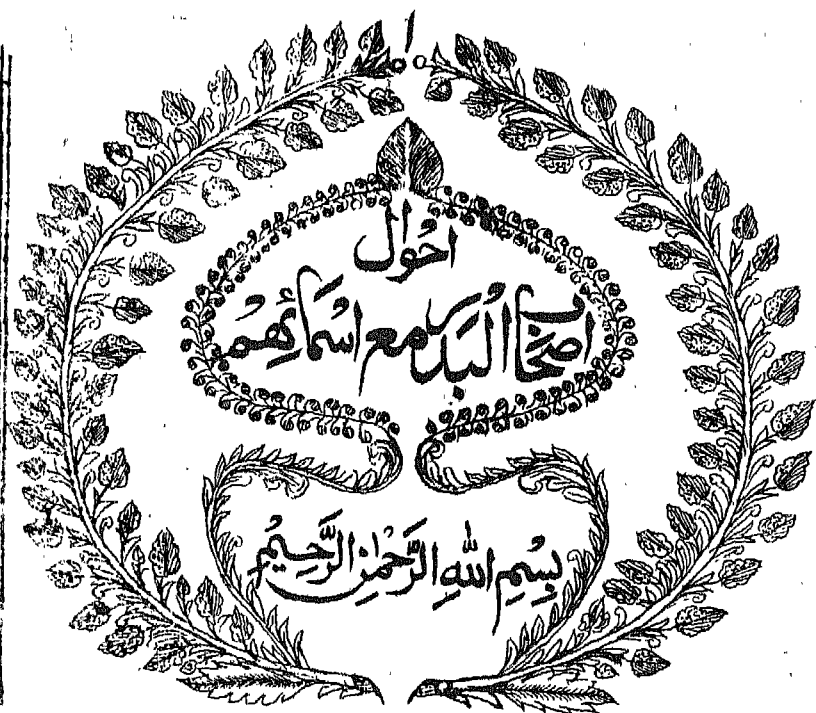 احوال
اصحاب البدر مع اسمائهم
بِسْمِ اللهِ الرَّحْمٰنِ الرَّحِيْمِ